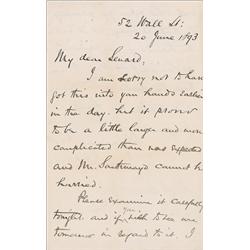 52 Wall St:
20 June 1893
My dear Seward:
I am sorry not to have
got this into you hands earlier
in the day. but it proves
to be a little larger and more
complicated than was expected
and Mr. Southmayd cannot be
hurried.
Please examine it carefully
tonight. and if you wish to see me
tomorrow in regard to it. I